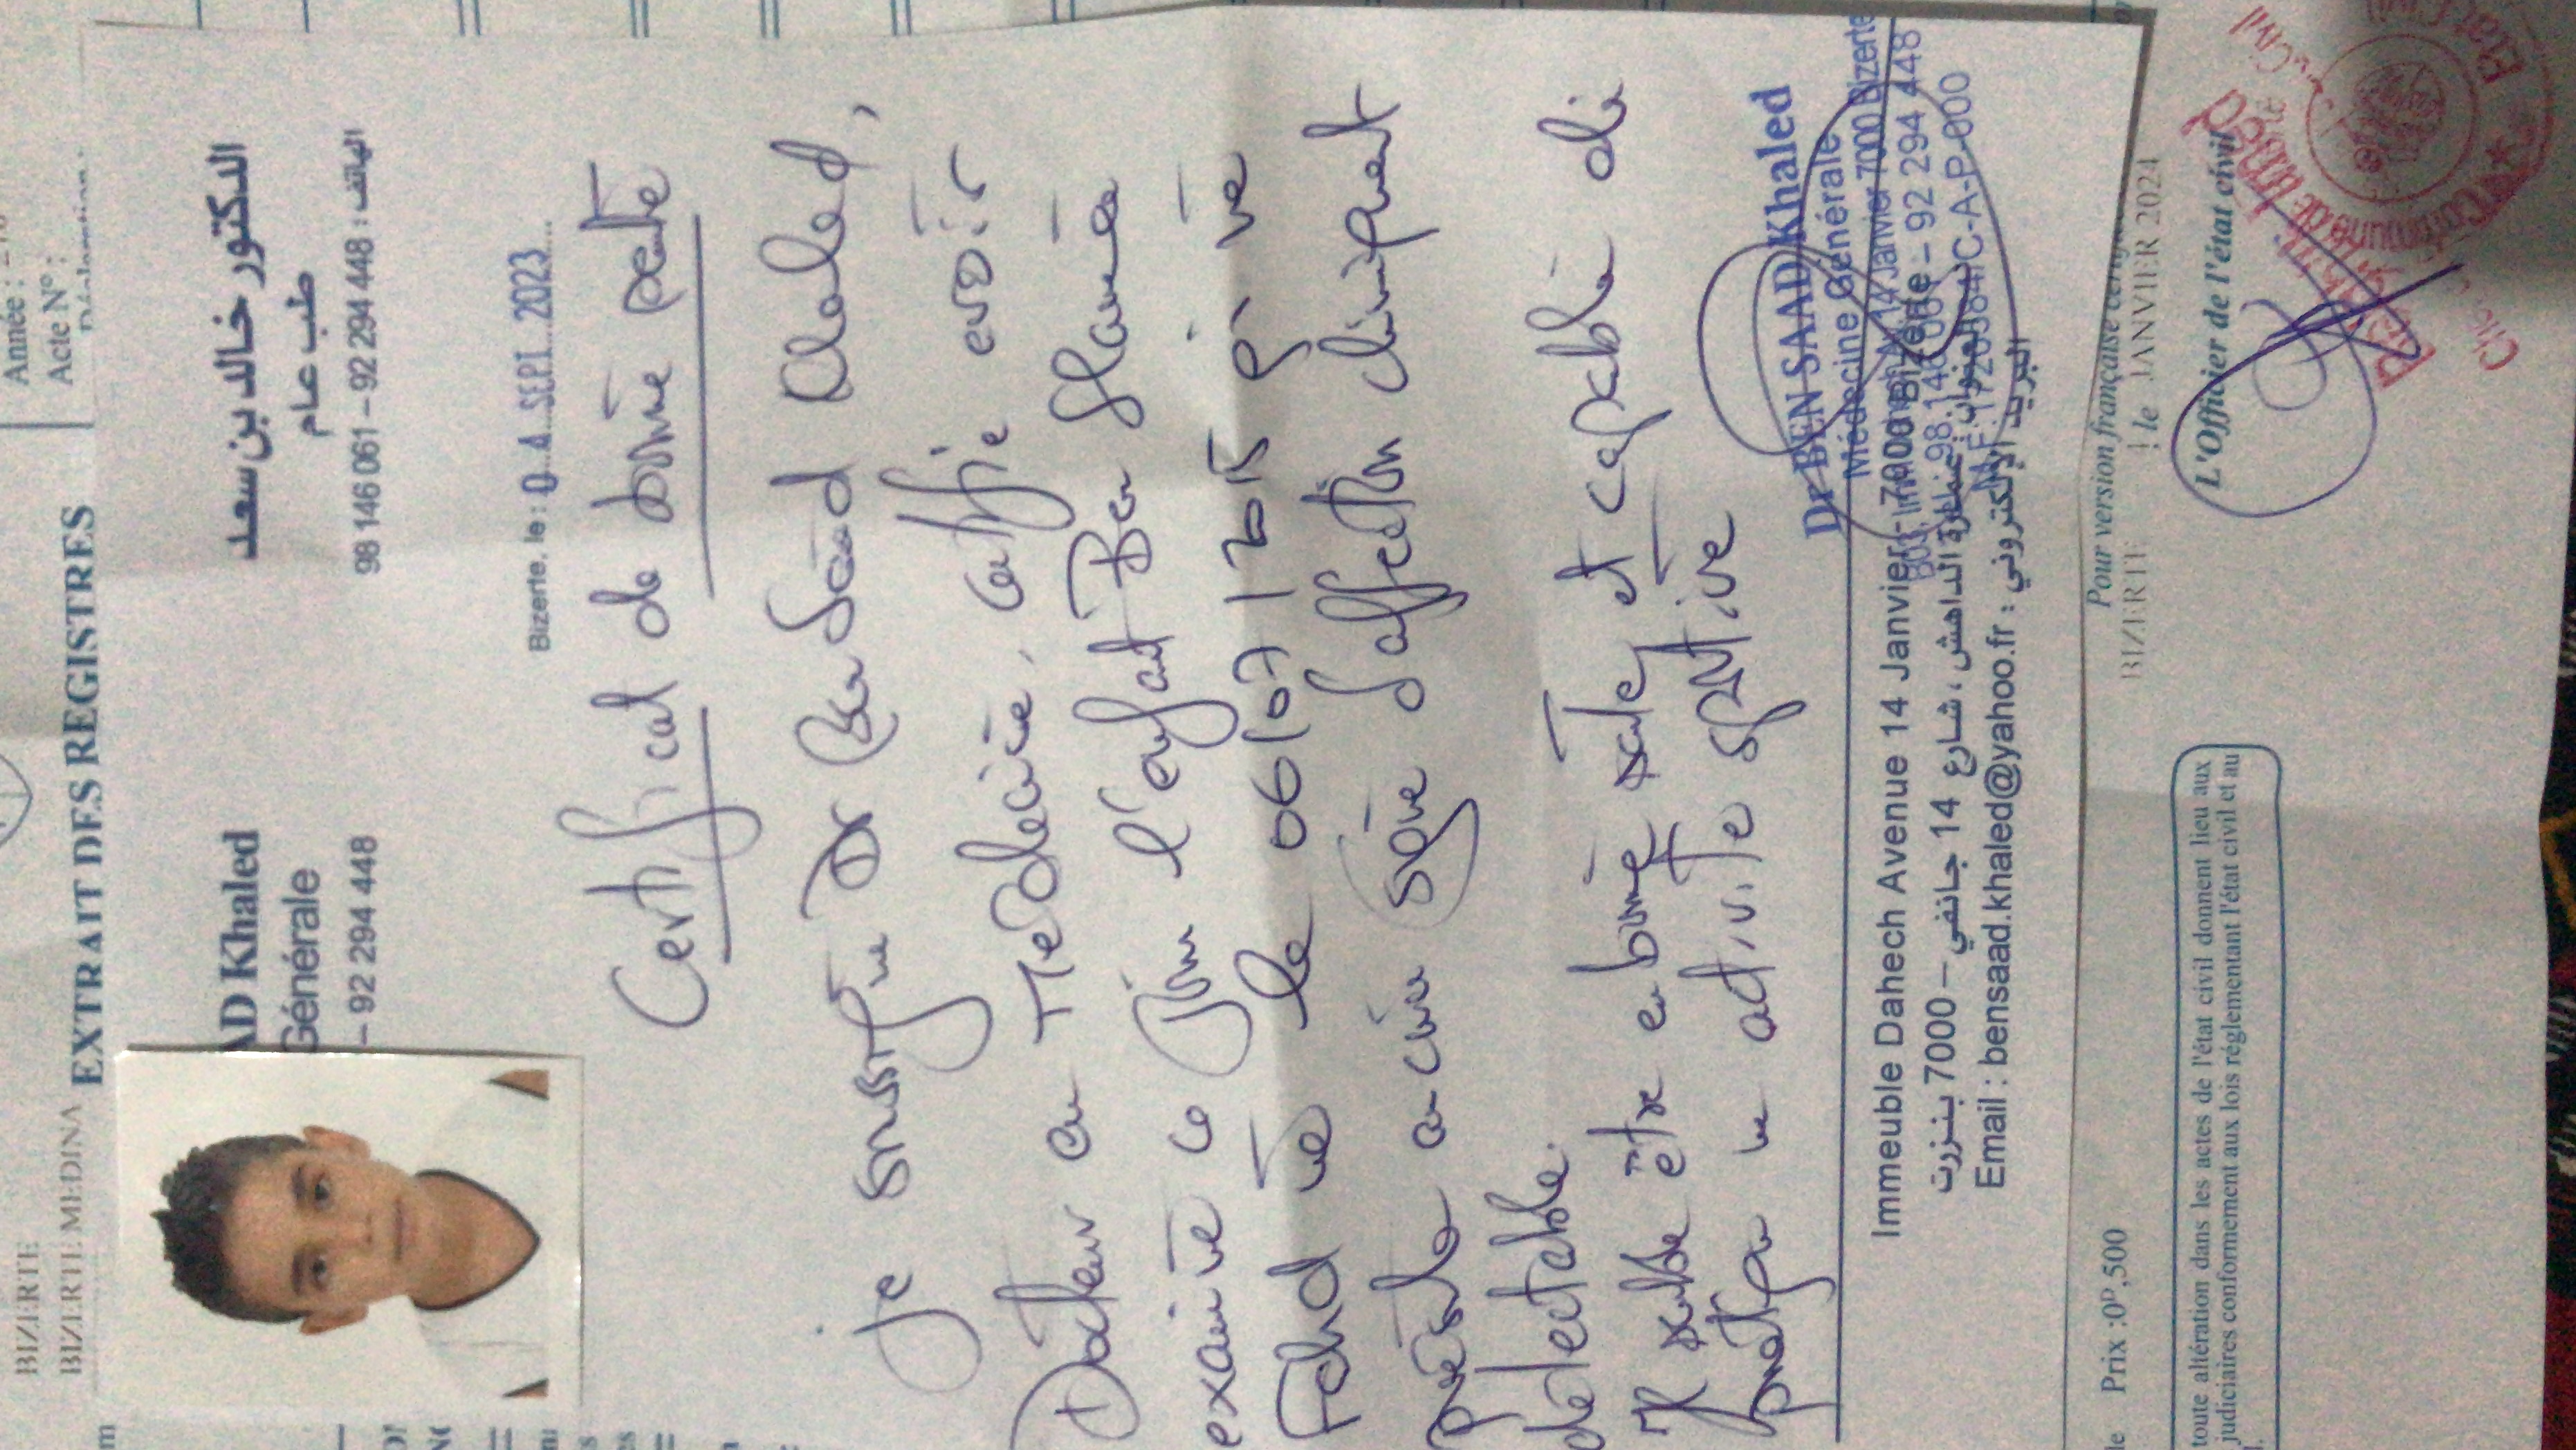 Année :
Acte N° :
BIZERTE
BIZERTE MEDINA
EXTRAIT DES REGISTRES
AD Khaled
Générale
– 92 294 448
الدكتور خالد بن سعد
طب عام
الهاتف : 448 294 92 – 061 146 98
Bizerte, le : 0 4 SEPT. 2023
Certificat de bonne santé
je soussigné Dr Ben Saad Khaled,
Docteur en Médecine, certifie avoir
examiné ce jour l'enfant Ben Slama
Fahd né le 06/07/2015 qui ne
présente aucun signe d'affection cliniquement
détectable.
Il semble être en bonne santé et capable de
pratiquer une activité sportive
Dr BEN SAAD Khaled
Médecine Générale
14 Janvier 7000 Bizerte
98 146 061 – 92 294 448
/C-A-P-000
Immeuble Dahech Avenue 14 Janvier - 7000 Bizerte
العنوان : عمارة الداهش ، شارع 14 جانفي – 7000 بنزرت
Email : bensaad.khaled@yahoo.fr : البريد الإلكتروني
Pour version française
BIZERTE le JANVIER 2024
Prix :0ᴰ,500
L'Officier de l'état civil
toute altération dans les actes de l'état civil donnent lieu aux
judiciaires conformement aux lois réglementant l'état civil et au